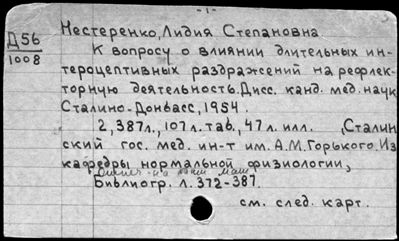 -1-
Д56
1008
Нестеренко, Лидия Степановна
К вопросу о влиянии длительных ин-
тероцептивных раздражений на рефлек-
торную деятельность. Дисс. канд. мед. наук
Сталино-Донбасс, 1954.
2, 387л., 107л. таб., 47л. илл. (Сталин
ский гос. мед. ин-т им. А.М. Горького. Из
кафедры нормальной физиологии)
Библиогр. л. 372-387.
см. след. карт.